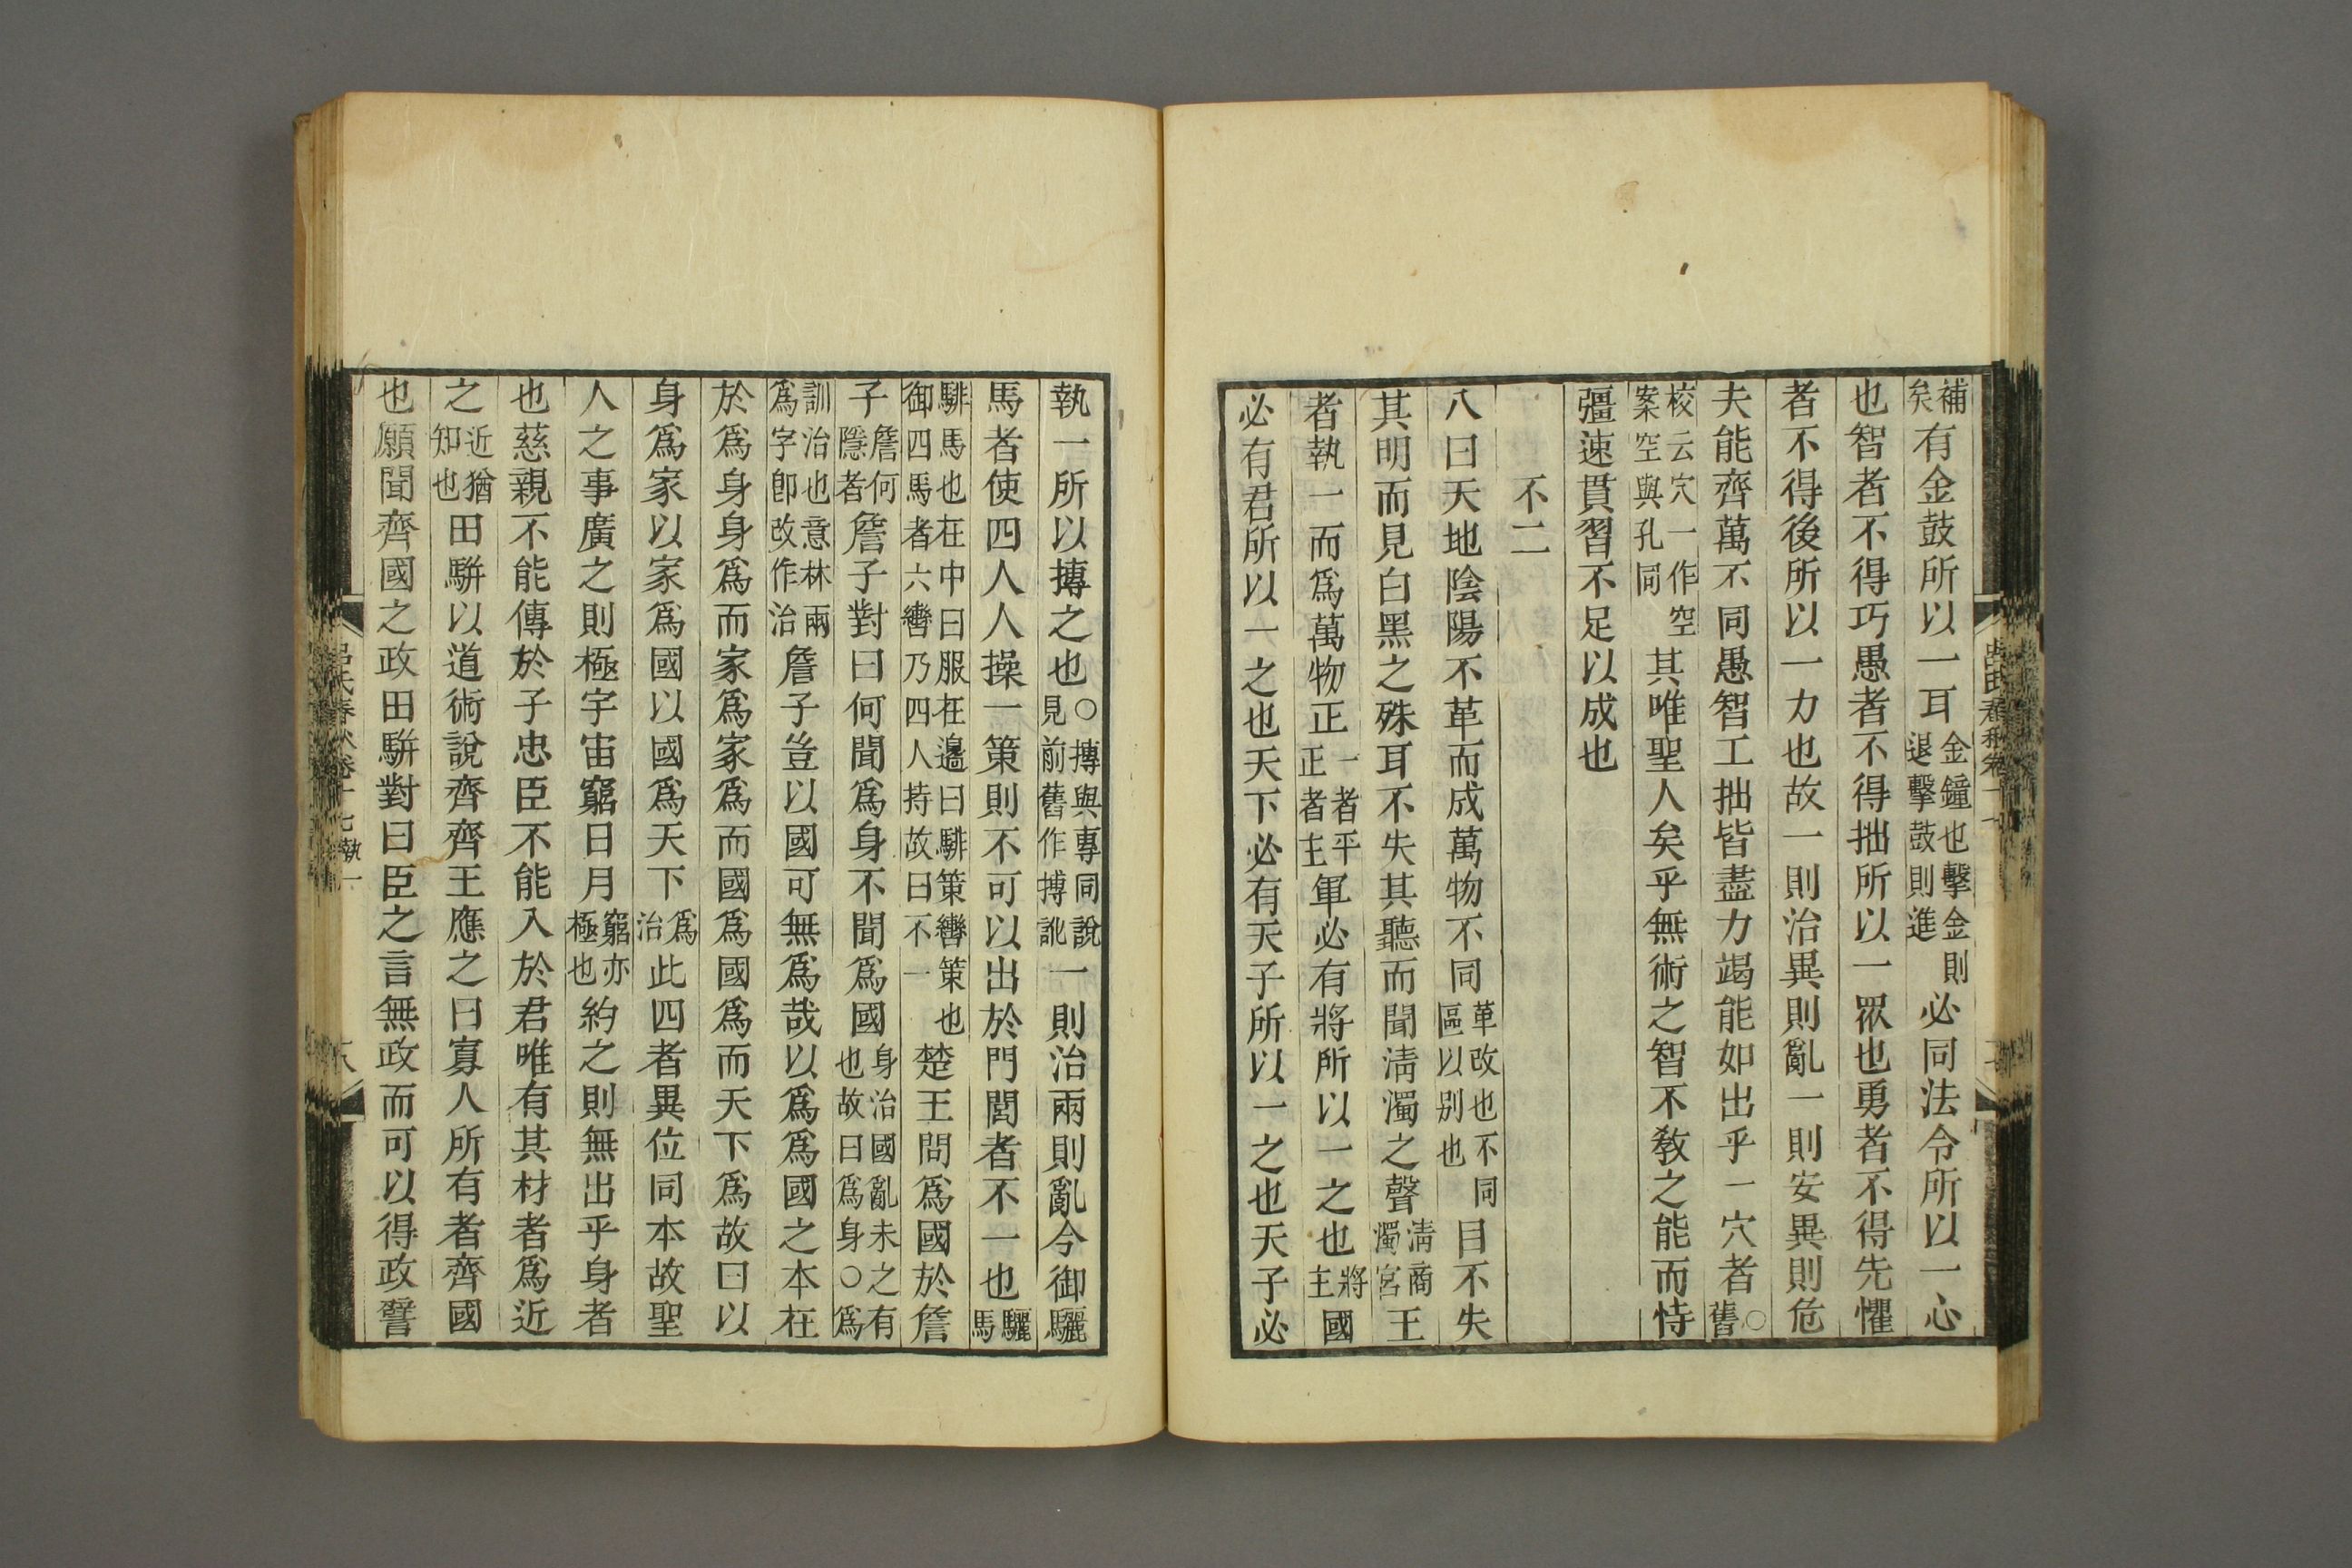 補矣有金鼓所以一耳金鐘也擊金則退擊鼓則進必同法令所以一心
也智者不得巧愚者不得拙所以一眾也勇者不得先懼
者不得後所以一力也故一則治異則亂一則安異則危
夫能齊萬不同愚智工拙皆盡力竭能如出乎一穴者○舊
校云穴一作空案空與孔同其唯聖人矣乎無術之智不敎之能而恃
彊速貫習不足以成也
不二
八曰天地陰陽不革而成萬物不同革改也不同區以别也目不失
其明而見白黑之殊耳不失其聽而聞淸濁之聲淸商濁宮王
者執一而爲萬物正一者平正者主軍必有將所以一之也將主國
必有君所以一之也天下必有天子所以一之也天子必
執一所以摶之也○摶與專同說見前舊作搏訛一則治兩則亂今御驪
馬者使四人人操一策則不可以出於門閭者不一也驪馬
騑馬也在中曰服在邊曰騑策轡策也御四馬者六轡乃四人持故曰不一楚王問爲國於詹
子詹何隱者詹子對曰何聞爲身不聞爲國身治國亂未之有也故曰爲身○爲
訓治也意林兩爲字卽改作治詹子豈以國可無爲哉以爲爲國之本在
於爲身身爲而家爲家爲而國爲國爲而天下爲故曰以
身爲家以家爲國以國爲天下爲治此四者異位同本故聖
人之事廣之則極宇宙窮日月窮亦極也約之則無出乎身者
也慈親不能傳於子忠臣不能入於君唯有其材者爲近
之近猶知也田駢以道術說齊齊王應之曰寡人所有者齊國
也願聞齊國之政田駢對曰臣之言無政而可以得政譬
呂氏春秋卷十七執一